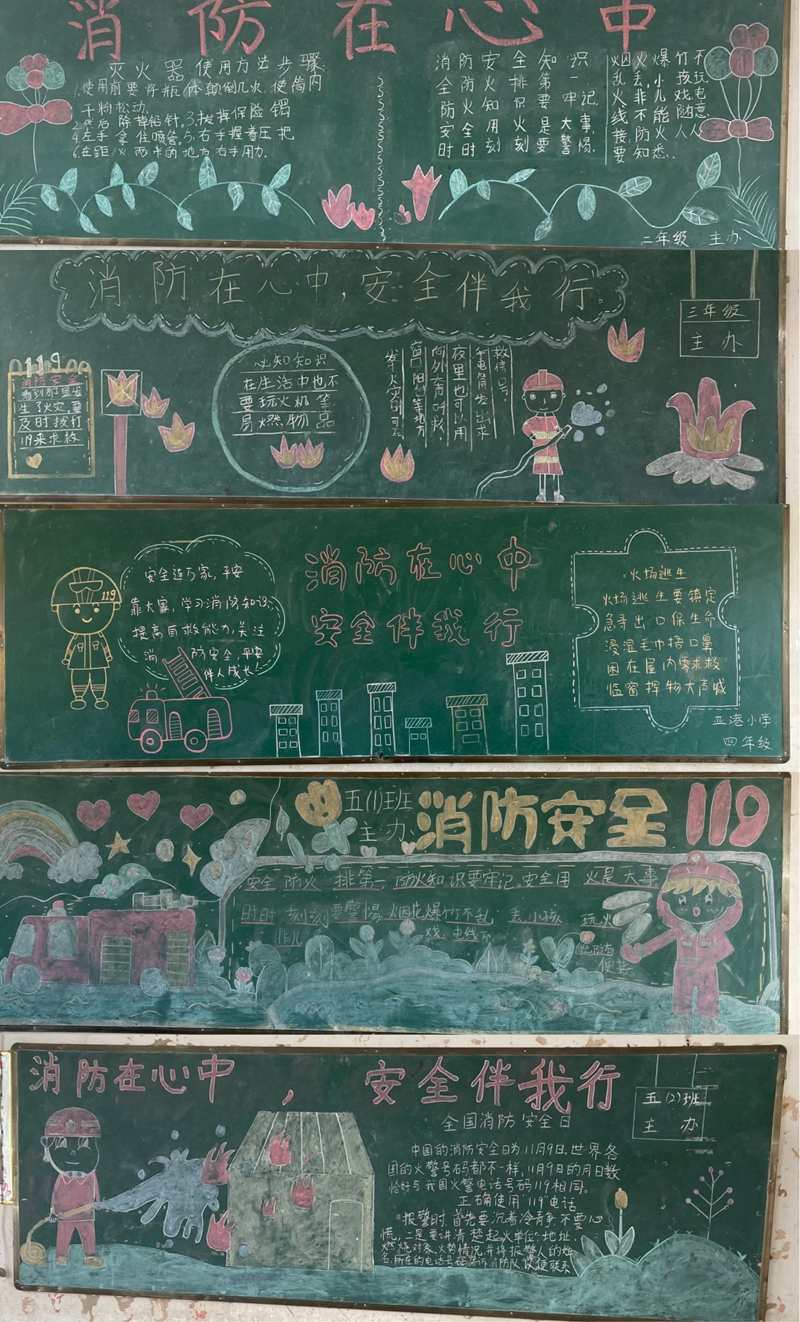 消防在心中
灭火器使用方法步骤
1.使用前要将瓶体颠倒几次,使筒内
干粉松动。
2.然后除掉铅封,3.拔掉保险销
4.左手拿住喷管,5.右手握着压把
6.在距火两米的地方,右手用力。
消防安全知识记
全防火排第一
防火知识要牢记
安全用火是大事
时时刻刻要警惕
烟火爆竹不
乱丢小孩玩
火非儿戏电
线不能随意
接防火人人
要知悉
二年级 主办
消防在心中,安全伴我行。
三年级
主办
119
消防安全
看到那里发
生了火灾,要
及时拨打
119来求救
必知知识
在生活中也不
要玩火机等
易燃物品
发生火灾时可在
窗口阳台等地方
向外大声呼救
夜里也可以用
手电筒发出求
救信号
消防在心中
安全伴我行
119
安全连万家,平安
靠大家,学习消防知识,
提高自救能力,关注
消防安全,平安
伴人成长!
火场逃生
火场逃生要镇定
急寻出口保生命
浸湿毛巾捂口鼻
困在屋内要求救
临窗挥物大声喊
亚港小学
四年级
五(1)班
主办
消防安全119
安全防火排第一,防火知识要牢记,安全用火是大事
时时刻刻要警惕,烟花爆竹不乱丢,小孩玩火
非儿戏,电线不能随意
便接
消防在心中,安全伴我行
五(2)班
主办
全国消防安全日
中国的消防安全日为11月9日,世界各
国的火警号码都不一样,11月9日的月日数
恰好与我国火警电话号码119相同。
正确使用"119"电话
报警时,首先要沉着冷静,不要心
慌,二是要讲清楚起火单位,地址,
燃烧对象,火势情况,并将报警人的姓
名,所在的电话号码告诉消防队以便联系